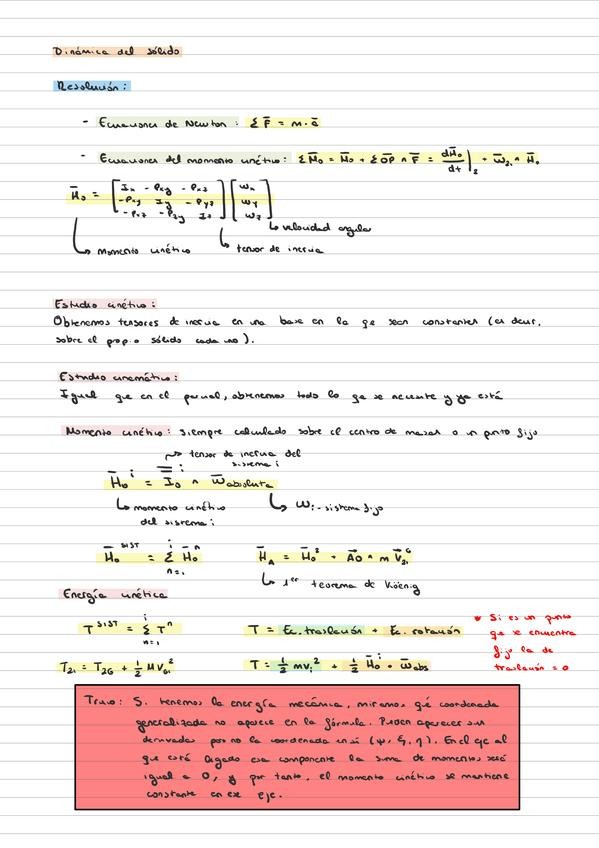 Dinámica del sólido
Resolución:
- Ecuaciones de Newton: Σ F̄ = m·ā
- Ecuaciones del momento cinético: Σ M̄₀ = M̄₀ + Σ OP̄ ∧ F̄ = dH̄₀/dt |₂ + ω̄₂₁ ∧ H̄₀
H̄₀ = [Ix -Pxy -Pxz; -Pxy Iy -Pyz; -Pxz -Pzy Iz] [ωx; ωy; ωz]
↳ velocidad angular
↳ momento cinético ↳ tensor de inercia
Estudio cinético:
Obtenemos tensores de inercia en una base en la qe sean constantes (es decir,
sobre el propio sólido cada uno).
Estudio cinemático:
Igual que en el parcial, obtenemos todo lo qe se necesite y ya está
Momento cinético: siempre calculado sobre el centro de masas o un punto fijo
tensor de inercia del
sistema i
H̄₀ⁱ = I₀ⁱ ∧ ω̄absoluta
↳ momento cinético ↳ ωi-sistema fijo
del sistema i
H̄₀ˢᴵˢᵀ = Σ H̄₀ⁿ n=1 i H̄A = H̄₀² + AŌ ∧ m V̄₂₁ᴳ
↳ 1er teorema de Köenig
Energía cinética
Tˢᴵˢᵀ = Σ Tⁿ n=1 i T = Ec. traslación + Ec. rotación
* Si es un punto
que se encuentra
fijo la de
traslación = 0
T₂₁ = T₂G + ½ MVG₁² T = ½ mvi² + ½ H̄₀ⁱ · ω̄abs
Truco: Si tenemos la energía mecánica, miramos qué coordenada
generalizada no aparece en la fórmula. Pueden aparecer sus
derivadas pero no la coordenada en sí (ψ, ξ, η). En el eje al
que está ligado esa componente la suma de momentos será
igual a 0, y por tanto, el momento cinético se mantiene
constante en ese eje.